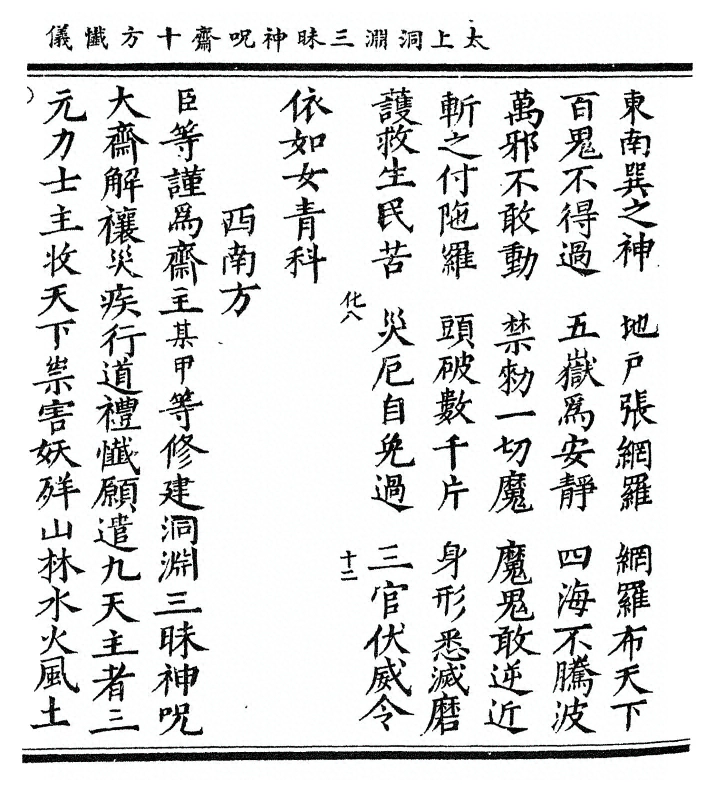 太上洞淵三昧神呪齋十方懺儀
東南巽之神　地戶張網羅　網羅布天下
百鬼不得過　五嶽爲安靜　四海不騰波
萬邪不敢動　禁勑一切魔　魔鬼敢逆近
斬之付陁羅　頭破數千片　身形悉滅磨
護救生民苦　災厄自免過　三官伏威令
化八　十二
依如女青科
西南方
臣等謹爲齋主某甲等修建洞淵三昧神呪
大齋解禳災疾行道禮懺願遣九天主者三
元力士主收天下祟害妖祥山林水火風土